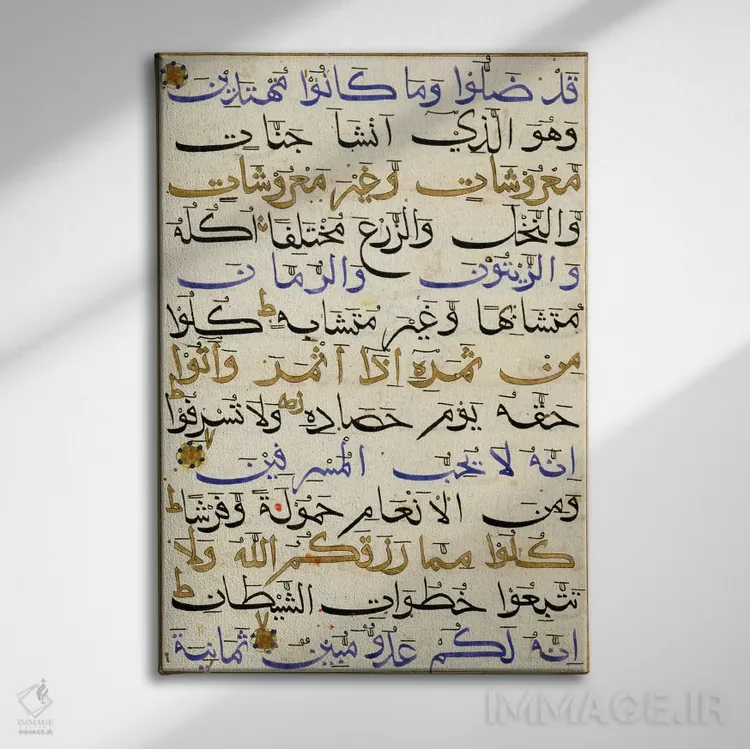 قد ضلوا وما كانوا مهتدين
وهو الذي انشا جنات
معروشات وغير معروشات
والنخل والزرع مختلفا اكله
والزيتون والرمان
متشابها وغير متشابه ط كلوا
من ثمره إذا أثمر وآتوا
حقه يوم حصاده ولا تسرفوا
انه لا يحب المسرفين
ومن الانعام حمولة وفرشا ط
كلوا مما رزقكم الله ولا
تتبعوا خطوات الشيطان ط
انه لكم عدو مبين ثمانية
IMMAGE
IMMAGE.IR
IMMAGE.IR